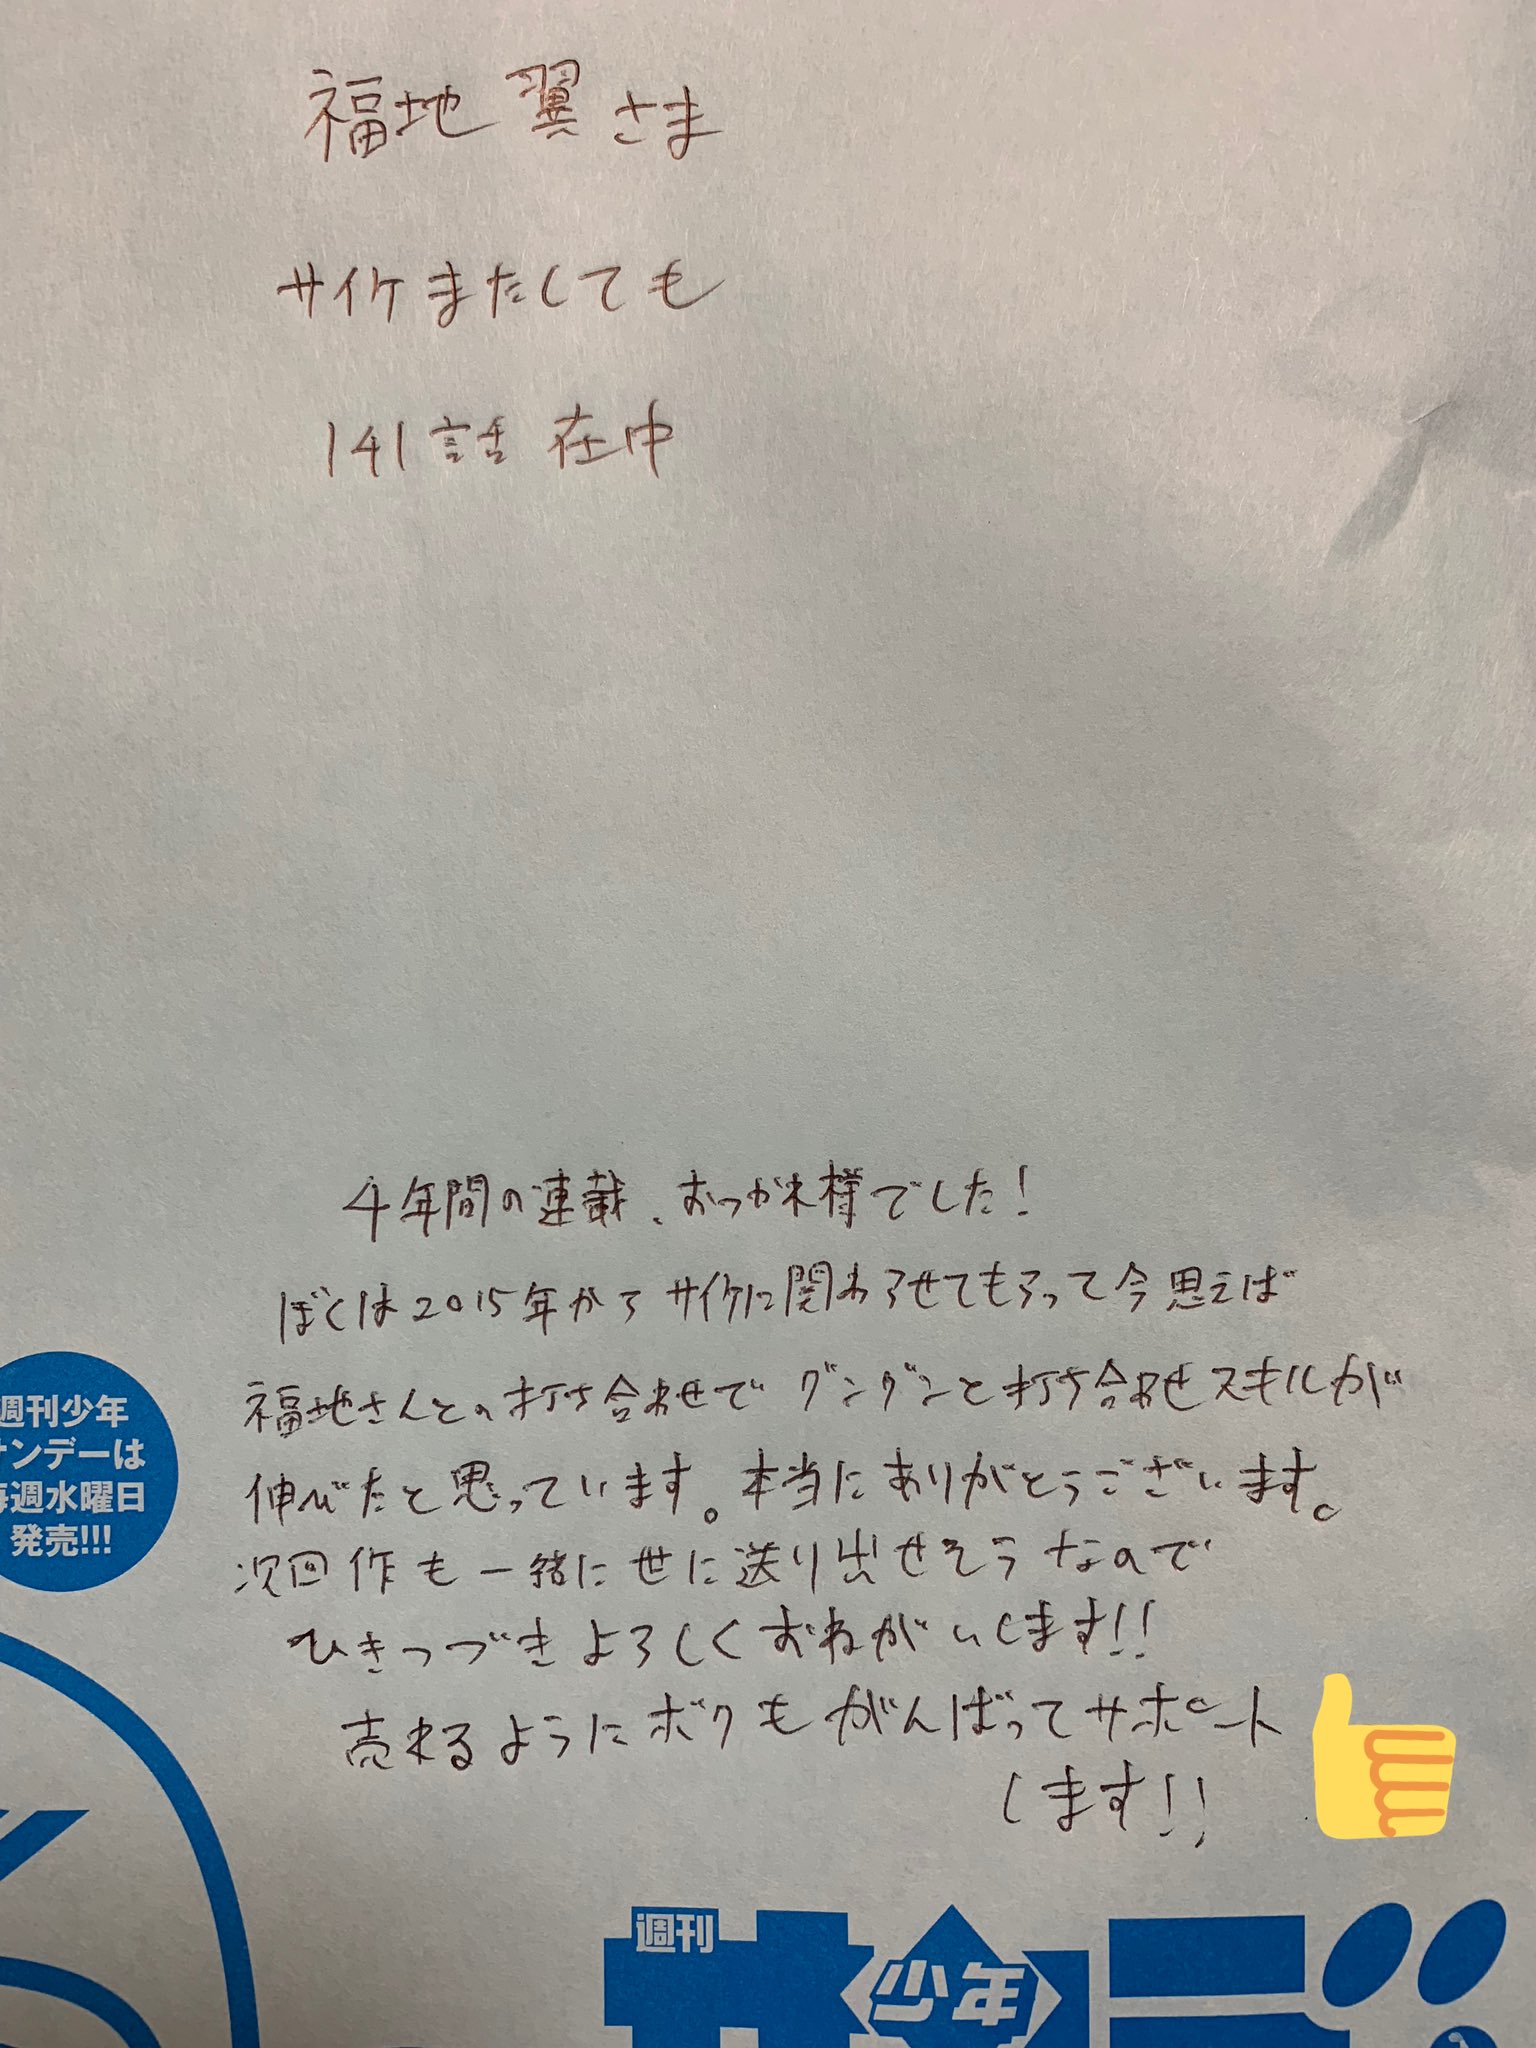 福地 翼さま
サイケまたしても
141話 在中
4年間の連載、おつかれ様でした!
ぼくは2015年からサイケに関わらせてもらって今思えば
福地さんとの打ち合わせでグングンと打ち合わせスキルが
伸びたと思っています。本当にありがとうございます。
次回作も一緒に世に送り出せそうなので
ひきつづきよろしくおねがいします!!
売れるようにボクもがんばってサポート
します!!
週刊少年
サンデーは
毎週水曜日
発売!!!
週刊
少年
サンデー